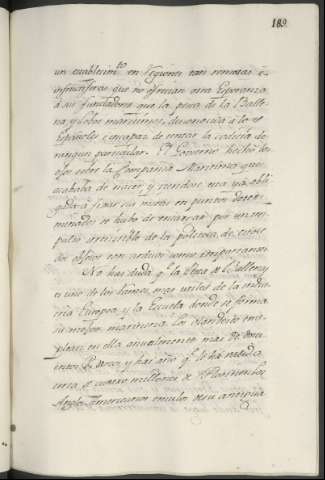 189
un establecim.to en regiones tan remotas è
infructiferas que no ofrecian otra Esperanza
à sus fundadores que la pesca de la Balle-
na, y Lobos marinos, desconocida à los
Españoles è incapaz de tentar la codicia de
ningun particular. El Govierno hechó los
ojos sobre la Compañia Maritima que
acababa de nacer, y viendose esta ya obli-
gada à fixar sus miras en puntos deter-
minados se hubo de encargar por un im-
pulso irresistible de la politica, de estos
dos objetos tan arduos como importantes.
No hay duda q.e la Pesca de la Ballena
es uno de los ramos mas utiles de la indus-
tria Europea, y la Escuela donde se forma
la mejor marineria. Los Olandeses em-
plean en ella anualmente mas de
cientos Barcos, y hay año q.e le há rendido
cerca de quatro millones de
Anglo-Americanos emulos de su antigua